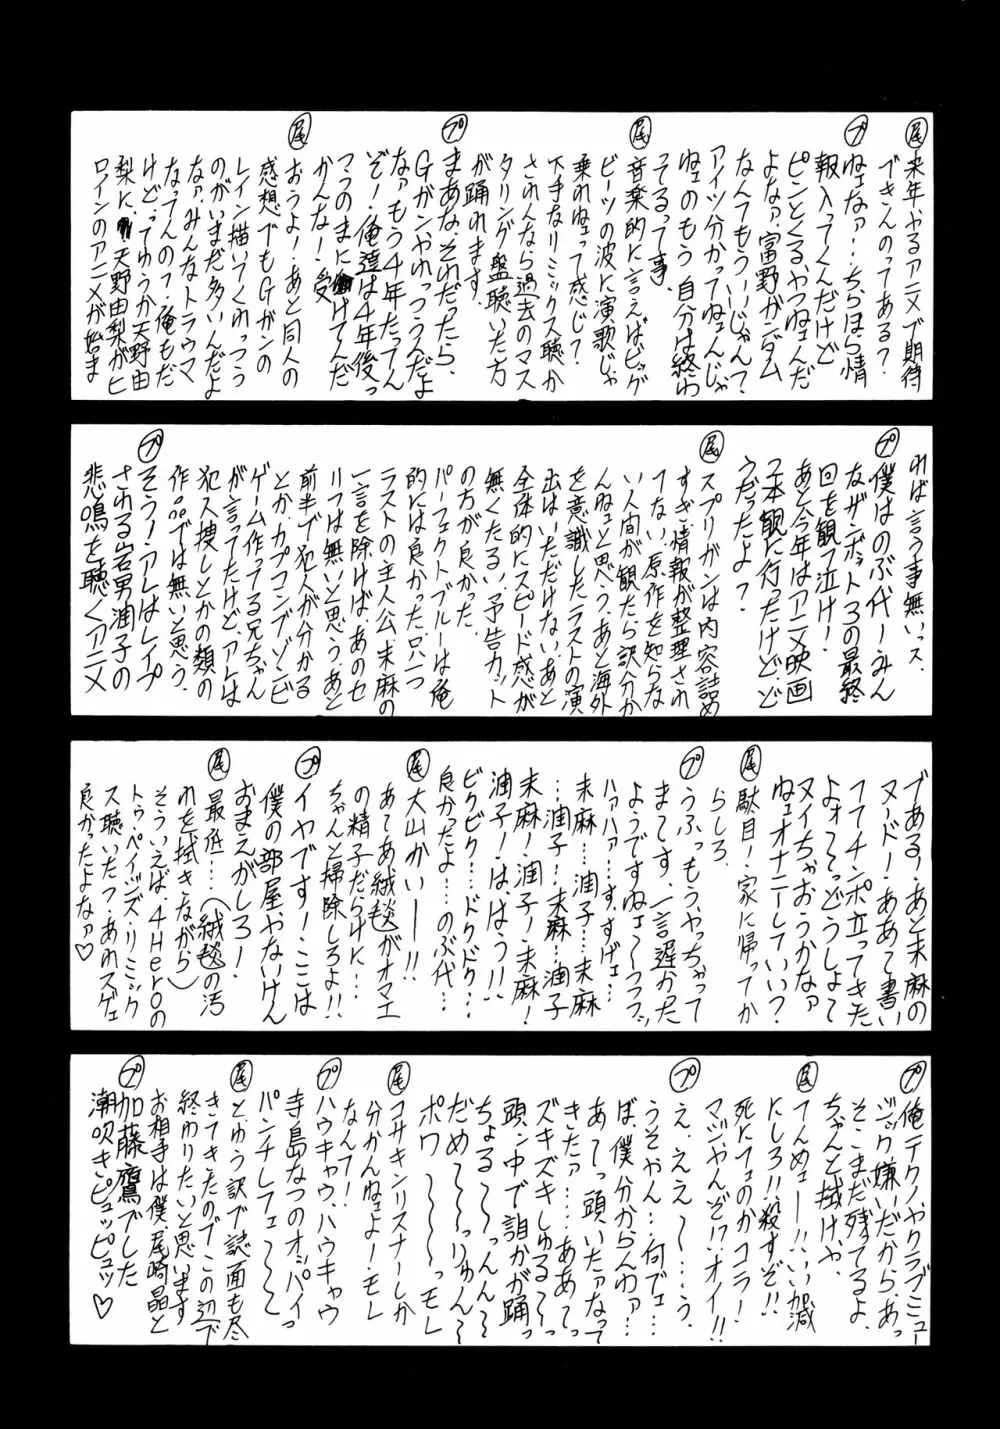 尾 来年やるアニメで期待
できんのってある？
プ ねェなァ…ちらほら情
報入ってくんだけど
ピンとくるやつねェんだ
よなァ。富野がンダム
なんてもういいじゃん？
アイツ分かってねェんじゃ
ねェのもう自分は終わ
ってるって事。
尾 音楽的に言えばビッグ
ビーツの波に演歌じゃ
乗れねェって感じ？
下手なリミックス聴か
されんなら過去のマス
タリング盤聴いた方
が踊れます。
プ まあな。それだったら、
Gガンやれっつうんだよ
なァもう4年たってん
ぞ！俺達は4年後っ
マつのまに働けてんだ
かんな！受
尾 おうよ！あと同人の
感想でもGガンの
レイン描いてくれっつう
のがいまだ多いんだよ
なァ。みんなトラウマ
なってんのフ・俺もだ
けど…ってゆうか天野由
梨に、天野由梨がヒ
ロインのアニメが始ま
れば言う事無いっス。
プ 僕はのぶ代ーみん
なザンボット3の最終
回を観て泣け！
あと今年はアニメ映画
2本観に行ったけど、ど
うだったよ？
尾 スプリガンは内容詰め
すぎ、情報が整理され
てない。原作を知らな
い人間が観たら訳分か
んねェと思う。あと海外
を意識したラストの演
出はいただけない。あと
全体的にスピード感が
無くたるい、予告カット
の方が良かった。
パーフェクトブルーは俺
的には良かった。只一つ
ラストの主人公、未麻の
一言を除けば。あのセ
リフは無いと思う。あと
前半で犯人が分かる
とか、カプコンでゾンビ
ゲーム作ってる兄ちゃん
が言ってたけど、アレは
犯人捜しとかの類の
作品では無いと思う。
プ そう！アレはレイプ
される岩男潤子の
悲鳴を聴くアニメ
である！あと未麻の
ヌード！ああて書い
ててチンポ立ってきた
よォ～っどうしよォて
ヌイちゃおうかなァ
ねェオナニーしていい？
尾 駄目！家に帰ってか
らしろ。
プ うふっもうやっちゃって
まぁ～す。一言遅かった
ようですねェ～フフフッ
ハァハァ…すっすげェ…
未麻…潤子…未麻
…潤子…未麻…潤子
未麻！潤子！未麻！
潤子！はぅはぅ！！
ビクビク……ドクドク…
良かったよ…のぶ代…
尾 大山かいー！！
あてあ絨毯がオマエ
の精子だらけに…
ちゃんと掃除しろよ！！
プ イヤです！ここは
僕の部屋やないけん
おまえがしろ！
尾 最低…（絨毯の汚
れを拭きながら）
そういえば、4Heroの
トゥ・ペイジズ・リミック
ス聴いたァ、あれスゲェ
良かったよなァ♡
プ 俺テクノやクラブミュー
ジック嫌いだから、あっ
そこまだ残ってるよ。
ちゃんと拭けや。
尾 てんめェー！！いい加減
にしろ！！殺すぞ！！
死にてェのかコラ！
マジやんぞ！？オイ！！
プ え、ええ～～……う、
うそやん…何でェ…
ぼ、僕分からんわァ…
あ～っ頭いたァなって
きたァ……ああ～っ
ズキズキしゅる～～っ
頭ン中で誰かが踊っ
ちょる～～んんん～
だめ～～～っりゅん～
ポワ～～～～っモレ
尾 コサキンリスナーしか
分かんねェよ！モレ
なんて！
プ ハウキャウ、ハウキャウ
寺島なつのオッパイっ
パンチしてェ～～～
尾 とゆう訳で誌面も尽
きてきたのでこの辺で
終わりたいと思います
お相手は僕、尾崎晶と
プ 加藤鷹でした
潮吹きピュッピュッ♡